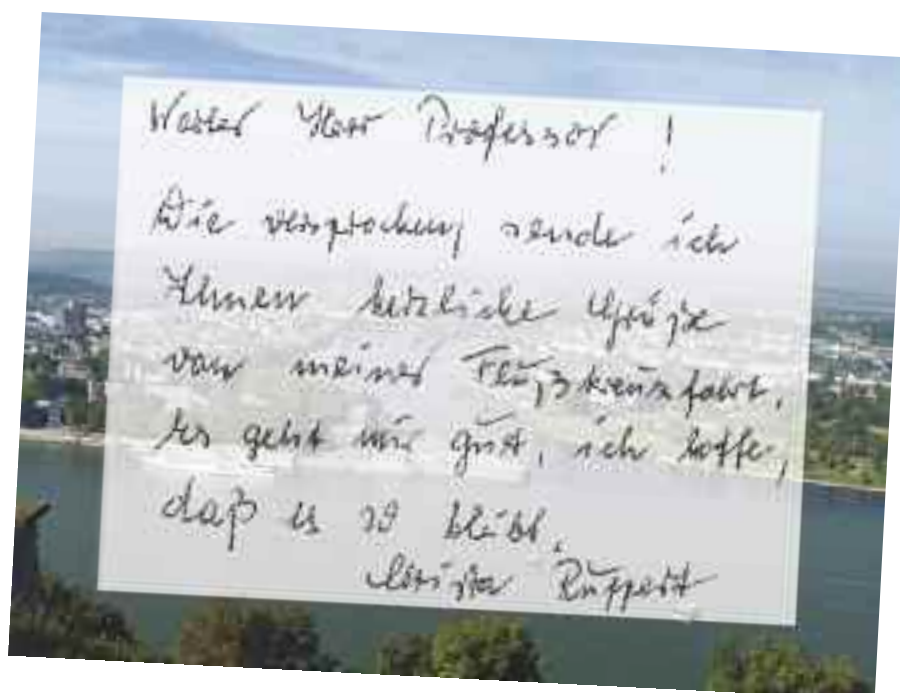 Werter Herr Professor!
Wie versprochen, sende ich
Ihnen herzliche Grüße
von meiner Flußkreuzfahrt.
Es geht mir gut, ich hoffe,
daß es so bleibt.
Christa Ruppert